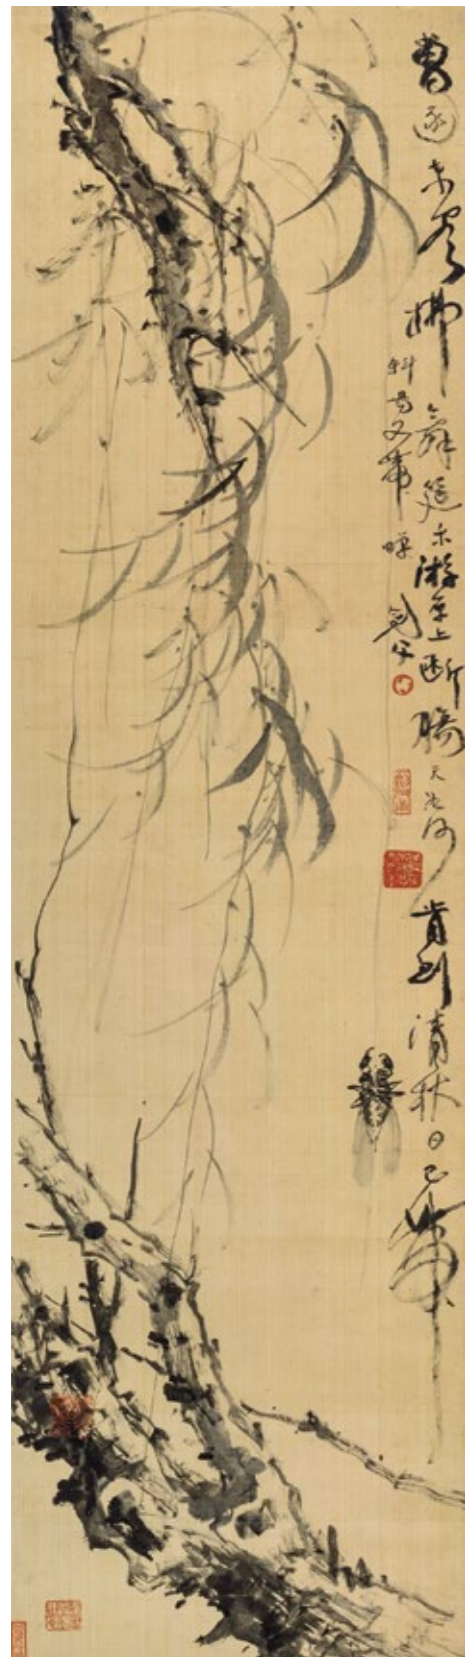 曾逐东风拂舞筵乐游原上断腸天如何肯到清秋日已帶
斜陽又帶蟬 劍父